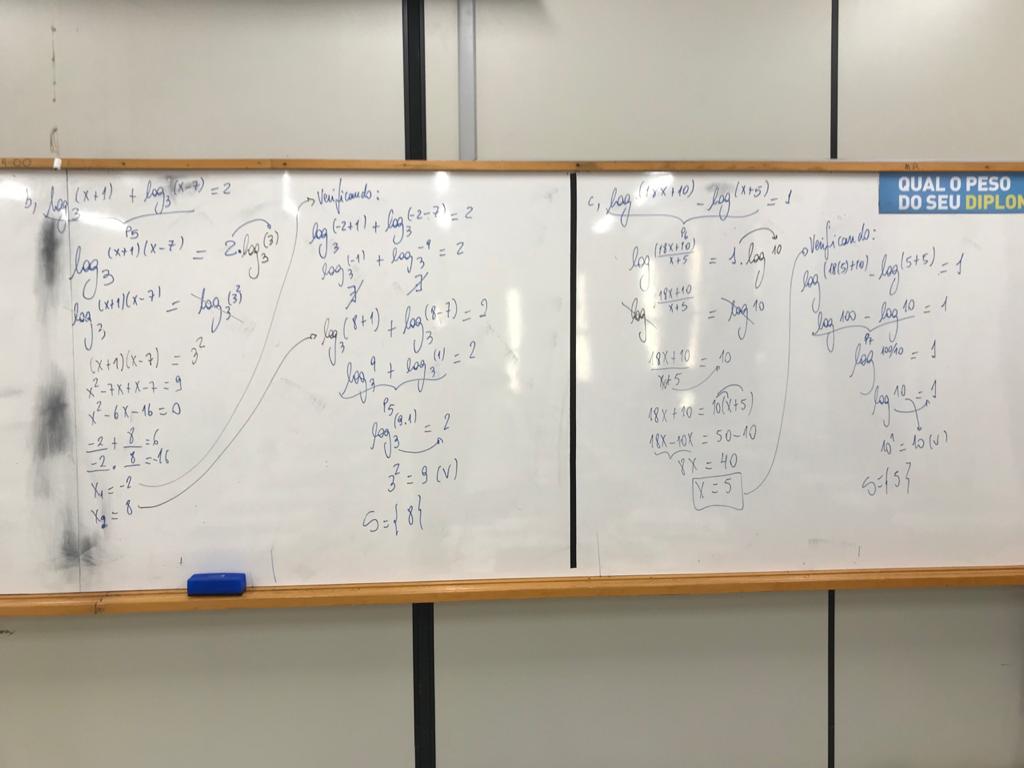 b) log₃(x+1) + log₃(x-7) = 2
P5
log₃(x+1)(x-7) = 2.log₃(3)
log₃(x+1)(x-7) = log₃(3)²
(x+1)(x-7) = 3²
x²-7x+x-7 = 9
x²-6x-16 = 0
-2 + 8 = 6
-2 . 8 = -16
x₁ = -2
x₂ = 8
Verificando:
log₃(-2+1) + log₃(-2-7) = 2
log₃(-1) + log₃-9 = 2
∄ ∄
log₃(8+1) + log₃(8-7) = 2
log₃9 + log₃(1) = 2
P5
log₃(9.1) = 2
3² = 9 (V)
S={8}
c) log(18x+10) - log(x+5) = 1
log (18x+10)/(x+5) = 1.log10
log (18x+10)/(x+5) = log10
(18x+10)/(x+5) = 10
18x+10 = 10(x+5)
18x-10x = 50-10
8x = 40
x = 5
Verificando:
log(18(5)+10) - log(5+5) = 1
log100 - log10 = 1
log100/10 = 1
log10 = 1
10¹ = 10 (V)
S={5}
QUAL O PESO
DO SEU DIPLOM